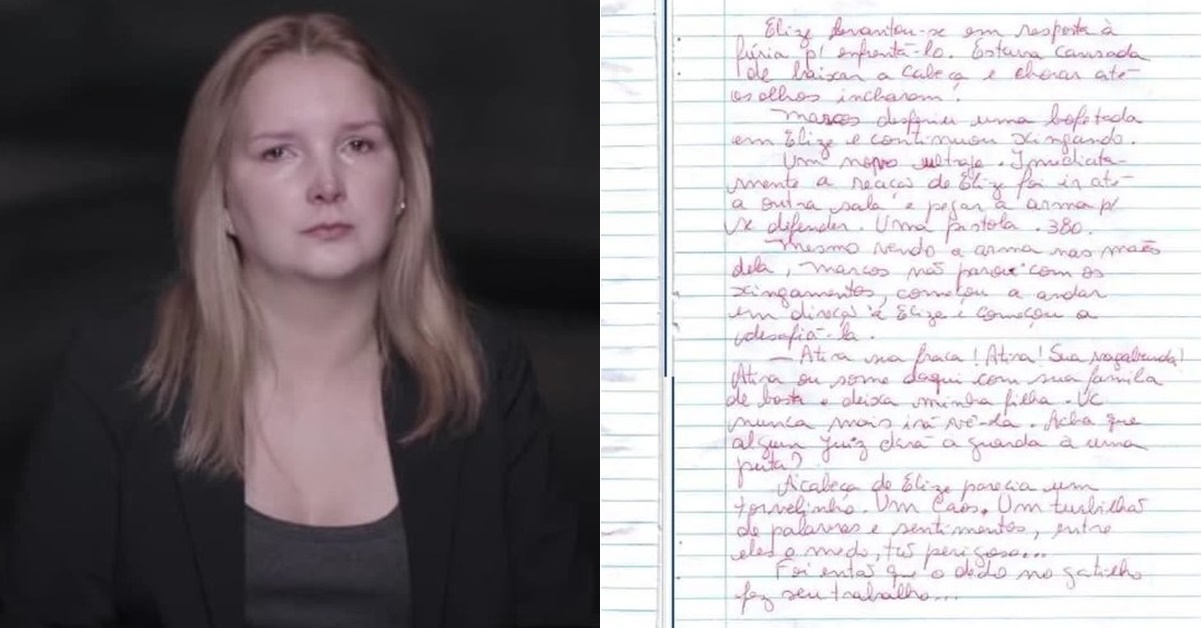 Elize levantou-se em resposta à
fúria p/ enfrentá-lo. Estava cansada
de baixar a cabeça e chorar até
os olhos incharem.
Marcos desferiu uma bofetada
em Elize e continuou xingando.
Um novo ultraje. Imediata-
mente a reação de Elize foi ir até
a outra sala e pegar a arma p/
se defender. Uma pistola .380.
Mesmo vendo a arma nas mãos
dela, Marcos não parou com os
xingamentos, começou a andar
em direção à Elize e começou a
desafiá-la.
— Atira sua fraca! Atira! Sua vagabunda!
Atira ou some daqui com sua família
de bosta e deixa minha filha. Vc
nunca mais irá vê-la. Acha que
algum Juiz dará a guarda à uma
puta?
A cabeça de Elize parecia um
torvelinho. Um Caos. Um turbilhão
de palavras e sentimentos, entre
eles o medo, tão perigoso...
Foi então que o dedo no gatilho
fez seu trabalho...